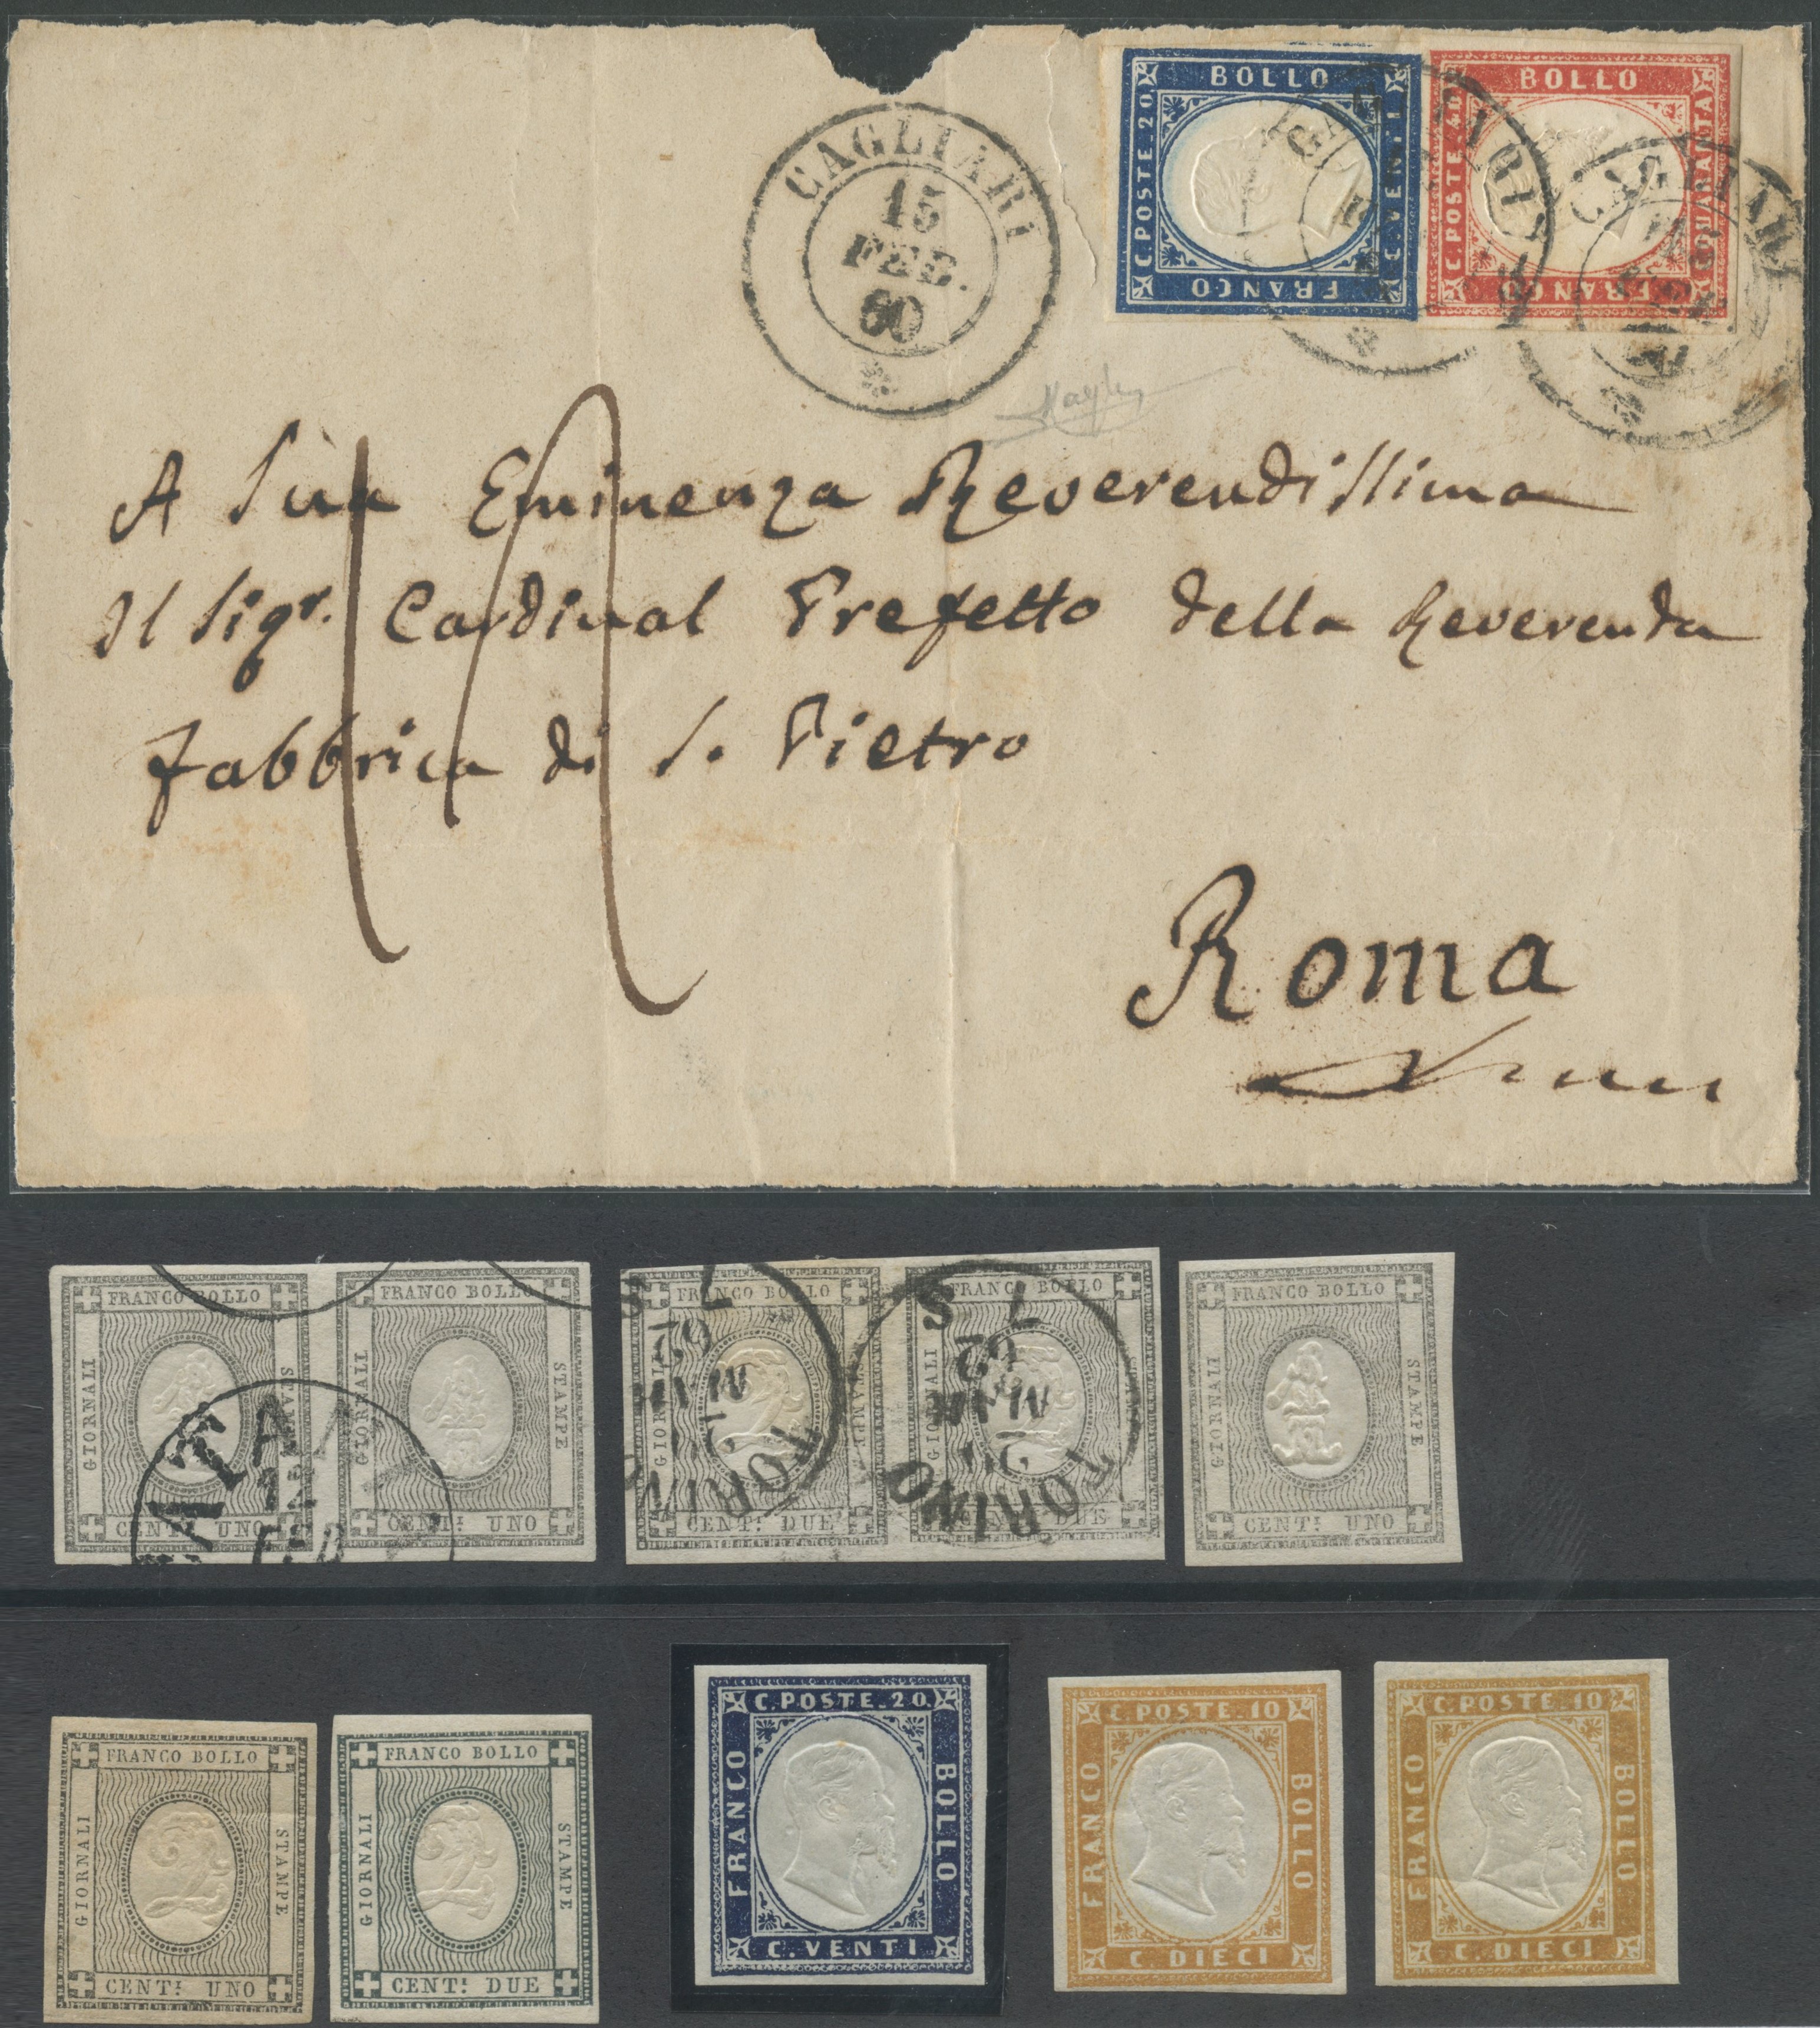 CAGLIARI
15
FEB.
60
BOLLO
C.POSTE.20.
C.VENTI
FRANCO
BOLLO
C.POSTE.40
QUARANTA
FRANCO
CAGLIARI
A Sua Eminenza Reverendissima
Il Sigr. Cardinal Prefetto della Reverenda
Fabbrica di S. Pietro
Roma
FRANCO BOLLO
GIORNALI
STAMPE
CENT: UNO
FRANCO BOLLO
GIORNALI
STAMPE
CENT: UNO
12
FRANCO BOLLO
GIORNALI
STAMPE
CENT: DUE
TORINO
62
7 S
FRANCO BOLLO
GIORNALI
CENT: DUE
TORINO
62
7 S
FRANCO BOLLO
GIORNALI
STAMPE
CENT: UNO
FRANCO BOLLO
GIORNALI
STAMPE
2
CENT: UNO
FRANCO BOLLO
GIORNALI
STAMPE
2
CENT: DUE
C.POSTE.20.
FRANCO
BOLLO
C.VENTI
C.POSTE.10
FRANCO
BOLLO
C.DIECI
C.POSTE.10
FRANCO
BOLLO
C.DIECI